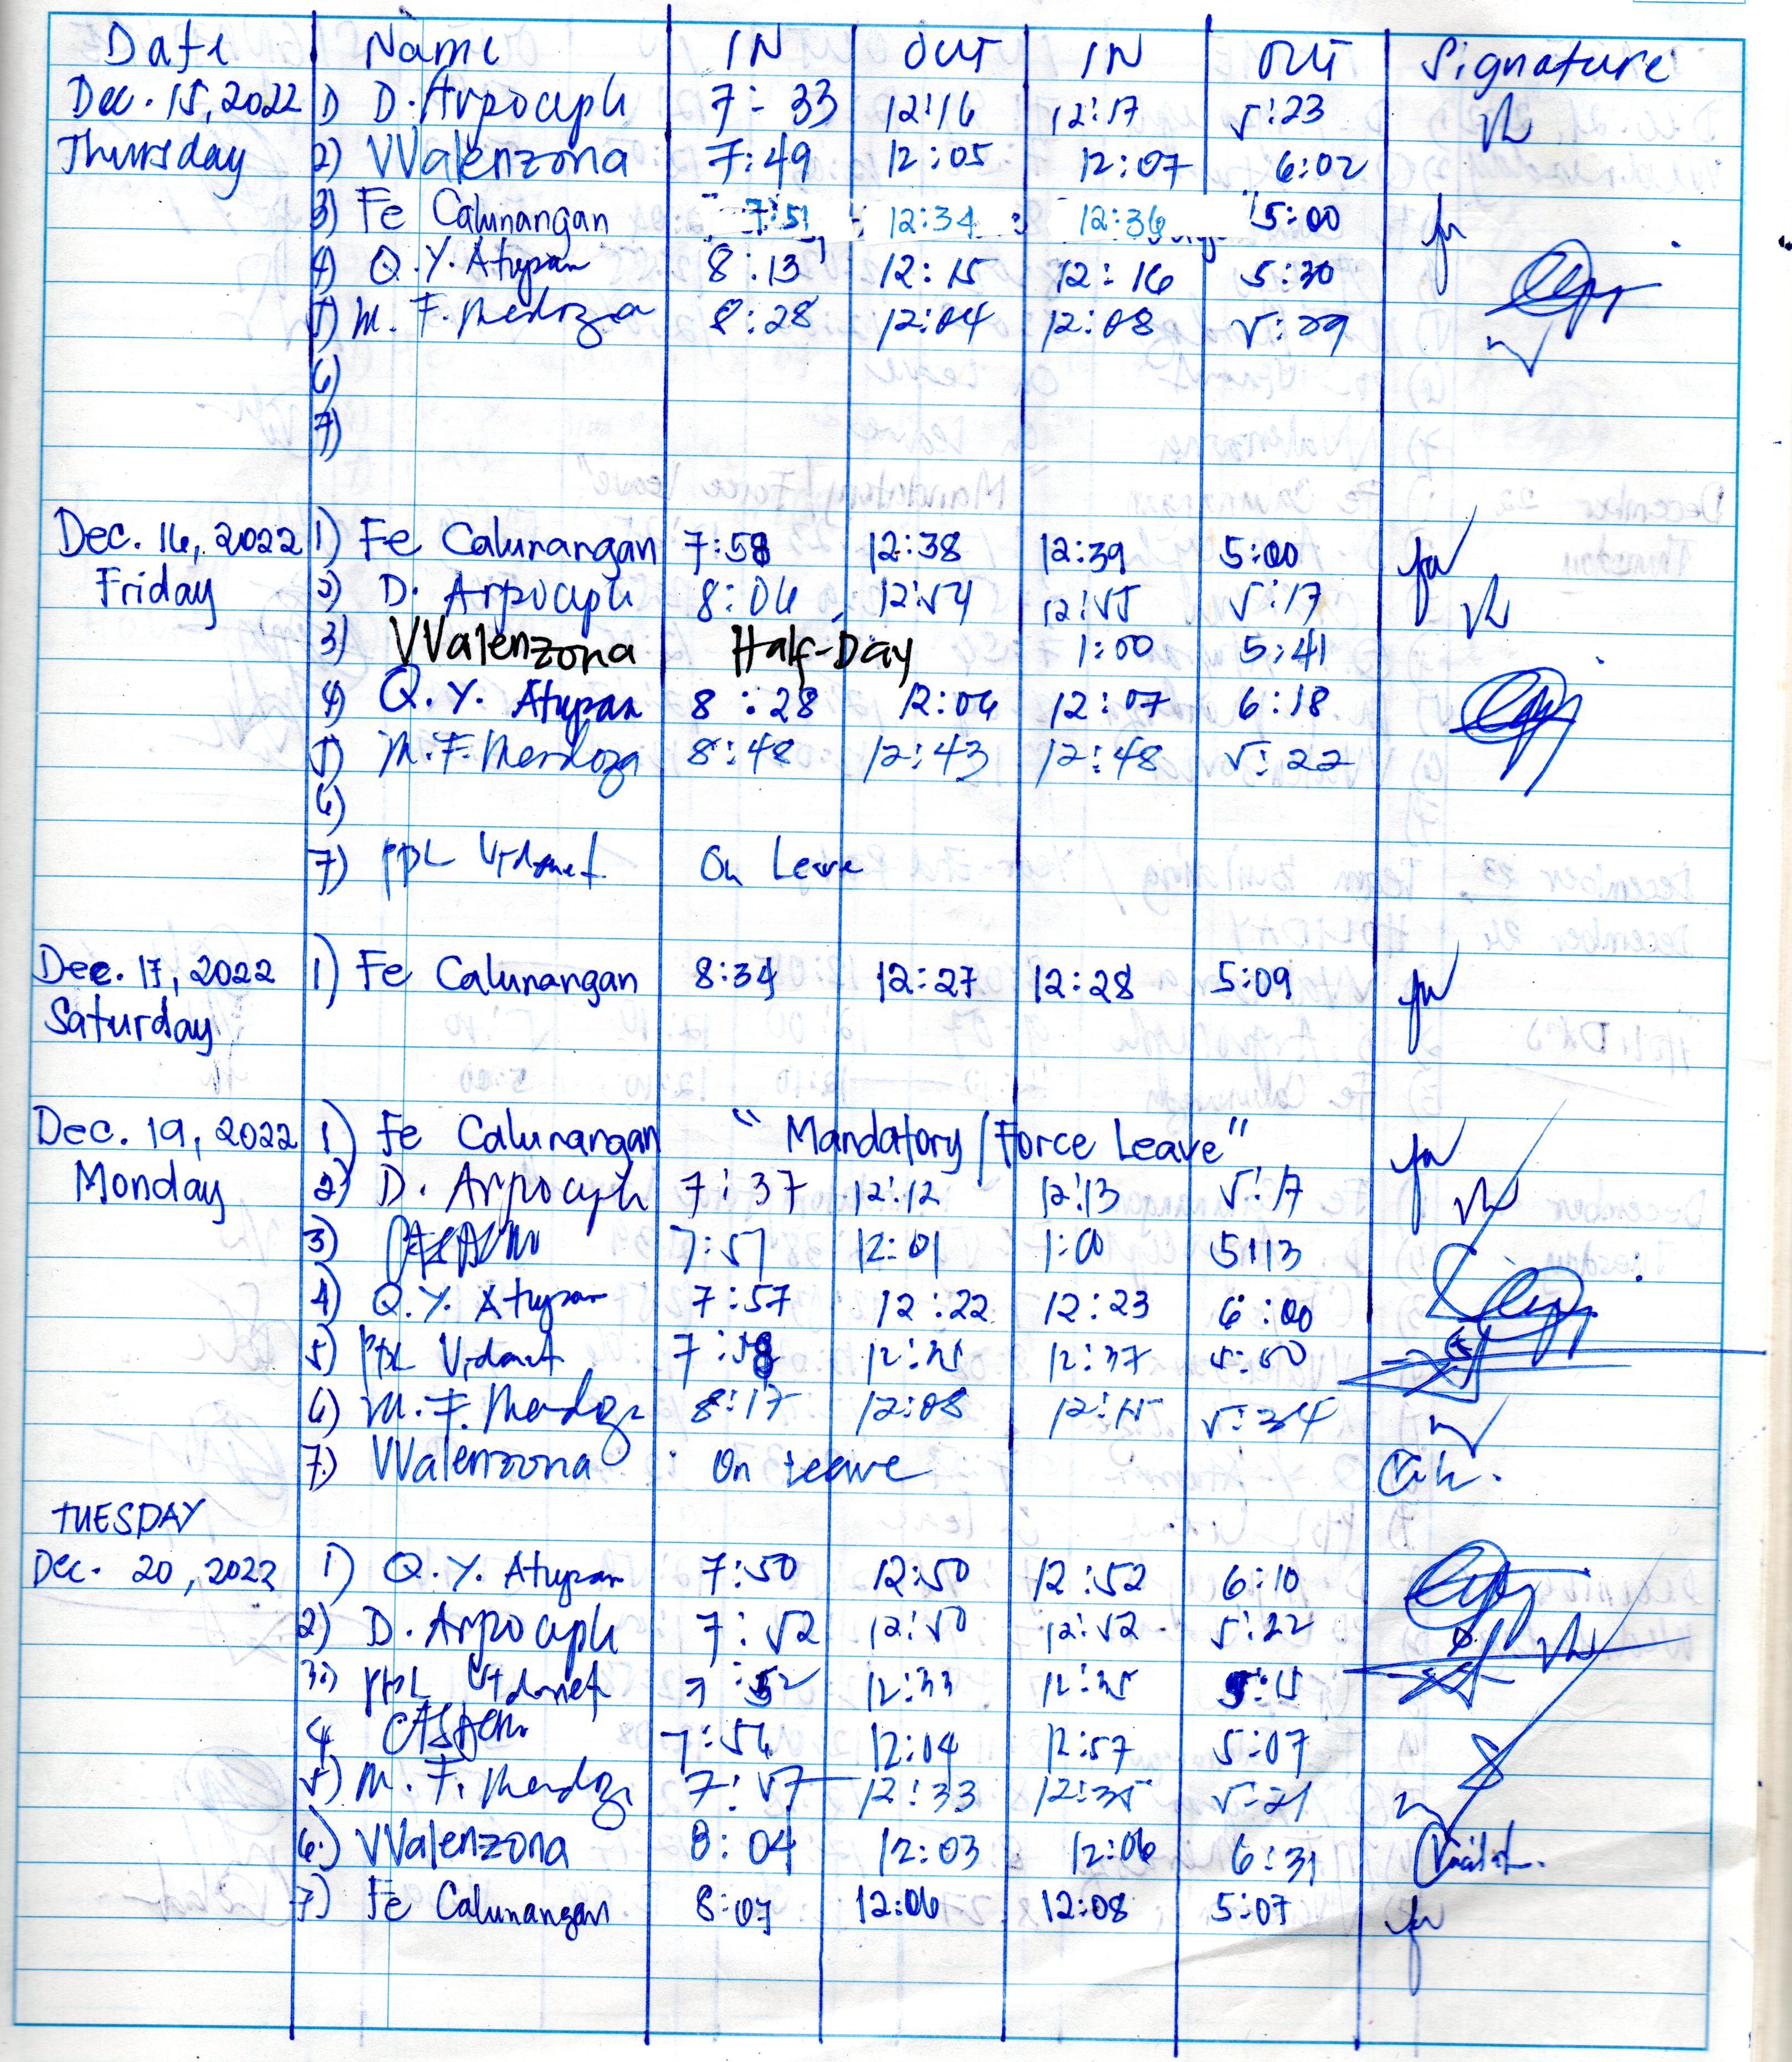 Date Name IN OUT IN OUT Signature
Dec. 15, 2022 1) D. Arpocyph 7:33 12:16 12:17 5:23
Thursday 2) VValenzona 7:49 12:05 12:07 6:02
3) Fe Calunangan 7:51 12:34 12:36 5:00
4) Q.Y. Atupan 8:13 12:15 12:16 5:30
5) M. F. Mendoza 8:28 12:04 12:08 5:29
6)
7)
Dec. 16, 2022 1) Fe Calunangan 7:58 12:38 12:39 5:00
Friday 2) D. Arpocyph 8:06 12:54 12:55 5:17
3) VValenzona Half-Day 1:00 5:41
4) Q.Y. Atupan 8:28 12:06 12:07 6:18
5) M.F. Mendoza 8:48 12:43 12:48 5:22
6)
7) On Leave
Dec. 17, 2022 1) Fe Calunangan 8:34 12:27 12:28 5:09
Saturday
Dec. 19, 2022 1) Fe Calunangan "Mandatory/Force Leave"
Monday 2) D. Arpocyph 7:37 12:12 12:13 5:17
3) 7:57 12:01 1:00 5:13
4) Q.Y. Atupan 7:57 12:22 12:23 6:00
5) 12:37
6) M. F. Mendoza 8:17 12:08 12:15 5:34
7.) VValenzona On Leave
TUESDAY
Dec. 20, 2022 1) Q.Y. Atupan 7:50 12:50 12:52 6:10
2) D. Arpocyph 7:52 12:50 12:52 5:22
3) 7:52 12:33 12:35 5:15
4 7:56 12:04 12:57 5:07
5) M. F. Mendoza 7:57 12:33 12:35 5:21
6.) VValenzona 8:04 12:03 12:06 6:31
7) Fe Calunangan 8:07 12:06 12:08 5:07